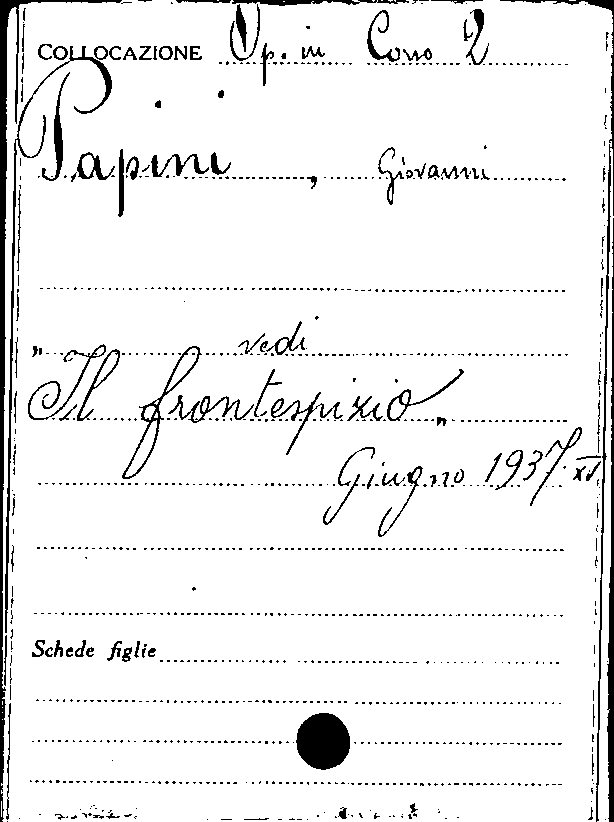 COLLOCAZIONE Op. in Corso 2
Papini, Giovanni
vedi
„Il frontespizio„
Giugno 1937. XV
Schede figlie